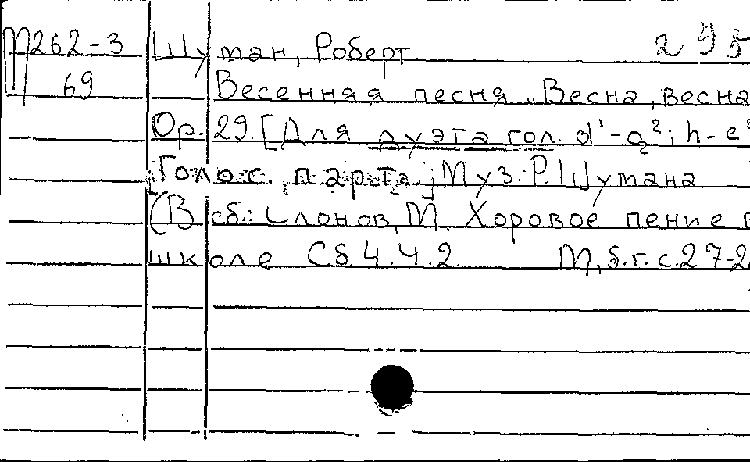 М262-3 Шуман, Роберт 295
69 Весенняя песня „Весна, весна
Ор. 29. [Для дуэта гол. d¹-g²; h-e²
Голос. партa.; Муз. Р. Шумана
(В сб.: Слонов, М. Хоровое пение в
школе Сб 4. Ч. 2 М, б.г. с. 27-2